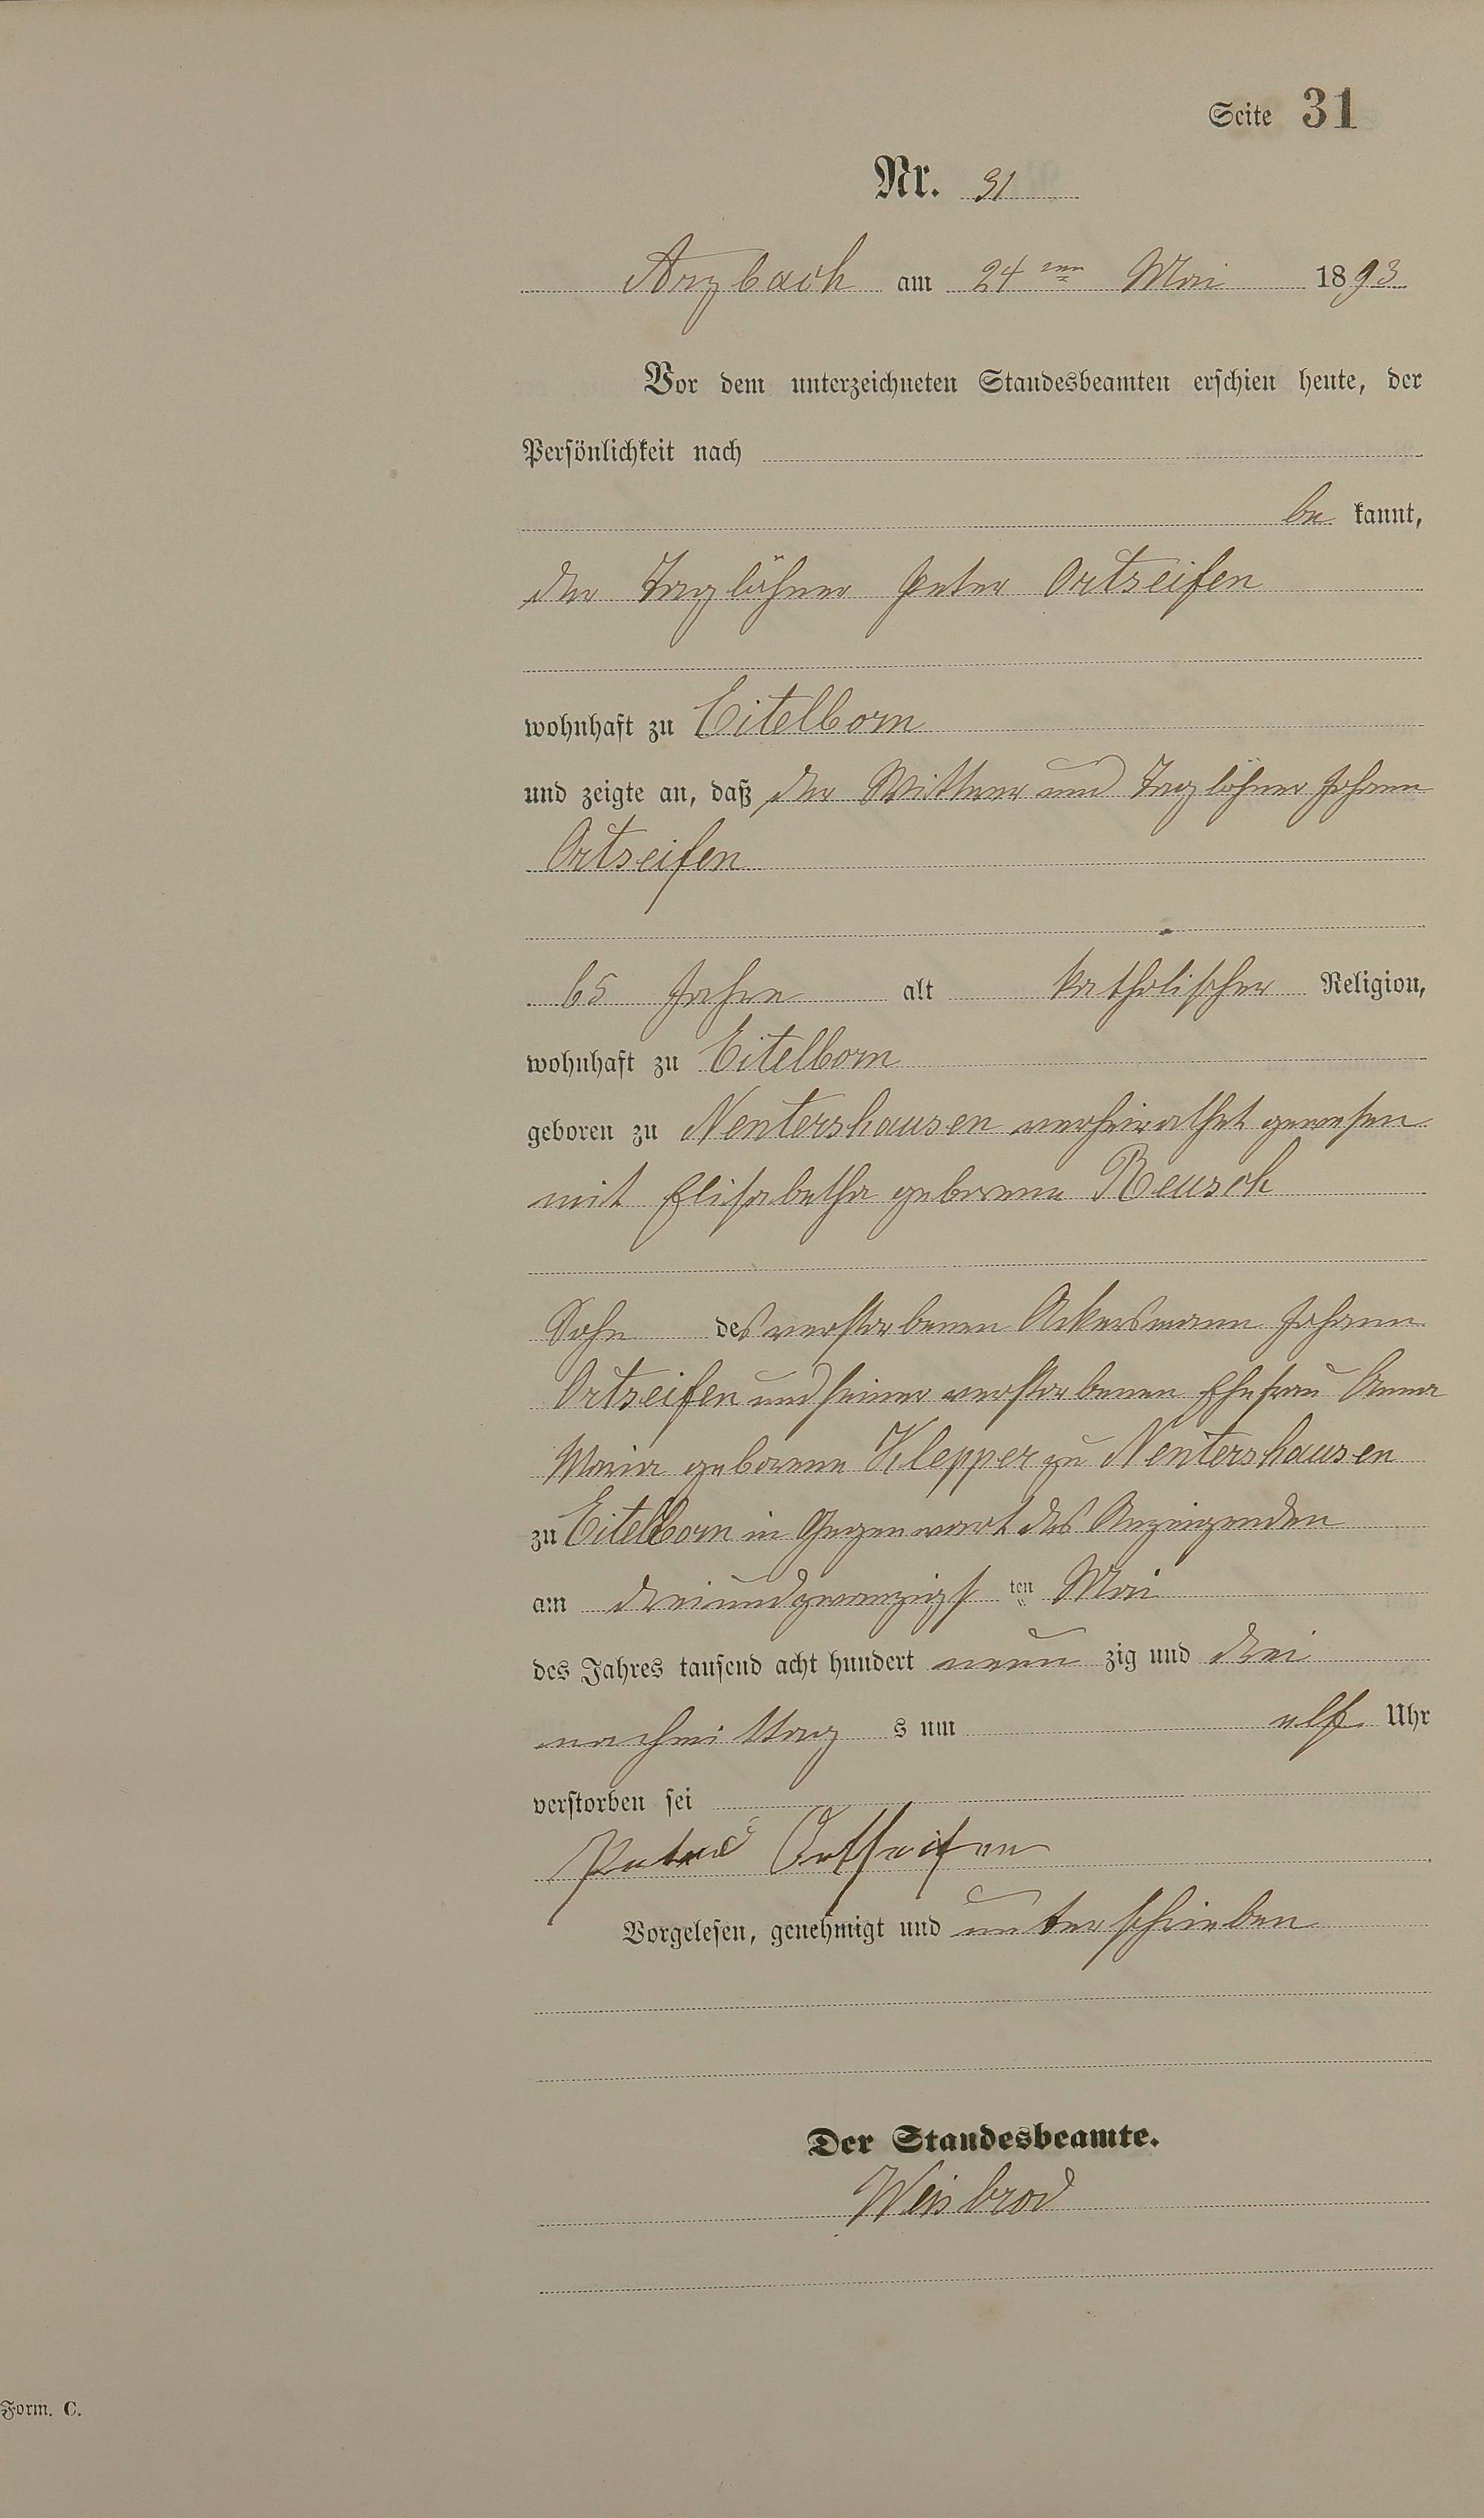 Seite 31
Nr. 31
Arzbach am 24ten Mai 1893
Vor dem unterzeichneten Standesbeamten erschien heute, der
Persönlichkeit nach
be kannt,
der Taglöhner Peter Ortseifen
wohnhaft zu Eitelborn
und zeigte an, daß der Wittwer und Taglöhner Johann
Ortseifen
65 Jahre alt katholischer Religion,
wohnhaft zu Eitelborn
geboren zu Nentershausen verheirathet gewesen
mit Elisabetha geborene Reusch
Sohn des verstorbenen Ackersmann Johann
Ortseifen und seiner verstorbenen Ehefrau Anna
Maria geborene Klepper zu Nentershausen
zu Eitelborn in Gegenwart des Anzeigenden
am dreiundzwanzigsten Mai
des Jahres tausend acht hundert neunzig und drei
nachmittags um elf Uhr
verstorben sei
Peter Ortseifen
Vorgelesen, genehmigt und unterschrieben
Der Standesbeamte.
Weisbrod
Form. C.